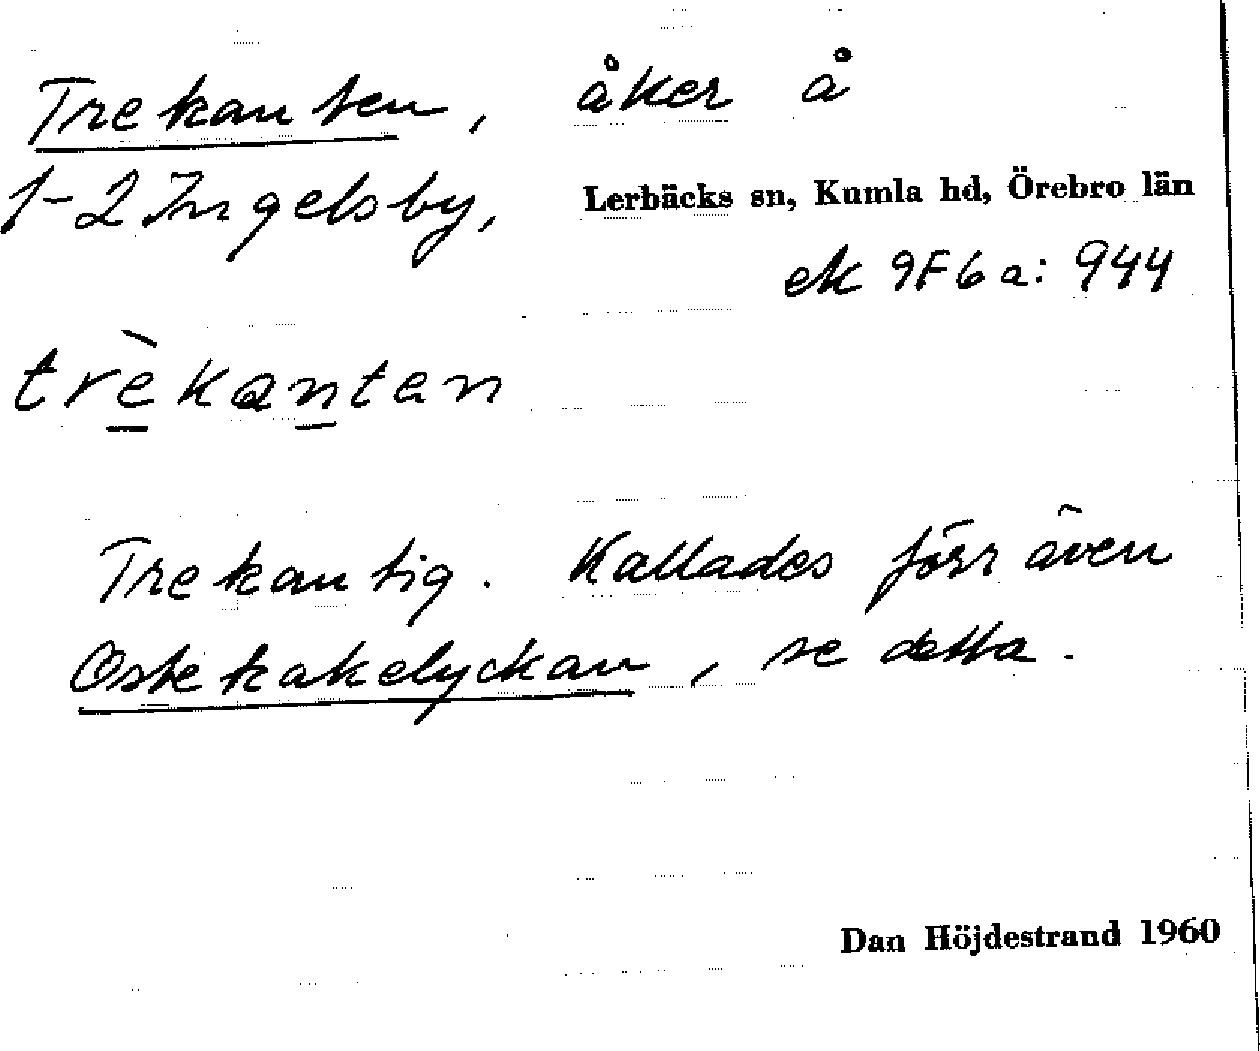 Trekanten, åker å
1-2 Ingelsby, Lerbäcks sn, Kumla hd, Örebro län
ek 9F6a: 944
trèkanten
Trekantig. Kallades förr även
Ostekakelyckan, se detta.
Dan Höjdestrand 1960